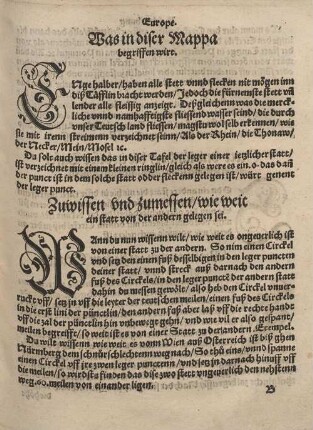 Europe.
Was in diser Mappa
begriffen wirt.
ENge halber/haben alle stett vnd flecken nit mögen inn
diß Täfflin bracht werden/Jedoch die fürnemste stett vñ
lender alle fleissig anzeigt. Deßgleichenn was die merck-
liche vnnd namhafftigste fliessend wasser sind/die durch
vnser Teutsch land fliessen/magstu wol selber kennen/wie
sie mit iren streimenn verzeichnet seinn/Als der Rhein/die Thonaw/
der Necker/Mein/Mosel ꝛc.
Du solt auch wissen das in diser Tafel der leger einer ietzlicher statt/
ist verzeichnet mit einem kleinen ringlin/gleich als were es ein.o.das dañ
der punct ist in dem solichs statt oder flecken gelegen ist/würt genent
der leger punct.
Zuwissen vnd zumessen/wie weit
ein statt von der andern gelegen sei.
WAnn du nun wissenn wilt/wie weit es ongeuerlich ist
von einer statt zu der andern. So nim einen Circkel
vnd setz den einen fuß desselbigen in den leger puncten
deiner statt/vnnd streck auß darnach den andern
fuß des Circkels/in den leger punctẽ der andern statt
dahin du messen gewölt/also heb den Circkel vnuer-
ruckt vff/setz jn vff die leyter der teutschen meilen/einen fuß des Circkels
in die erst lini der püncelin/den andern fuß aber laß vff die rechte hand
vff die zal der püncelin hin vnbewegt gehn/vnd wie vil er also gespant/
meilen begreifft/so weit ist es von einer Statt zu der andern/Exempel.
Du wilt wissenn wie weit es vonn Wien auß Osterreich ist biß ghen
Nürmberg dem schnürschlechtenn weg nach/So thů eins/vnd spann
einen Circkel vff jre zwen leger puncten/vnd setz jn darnach hinuff vff
die meilen/so wirdstu finden das dise zwo statt vngeuerlich den nehstenn
weg.60.meilen von einander ligen.
B